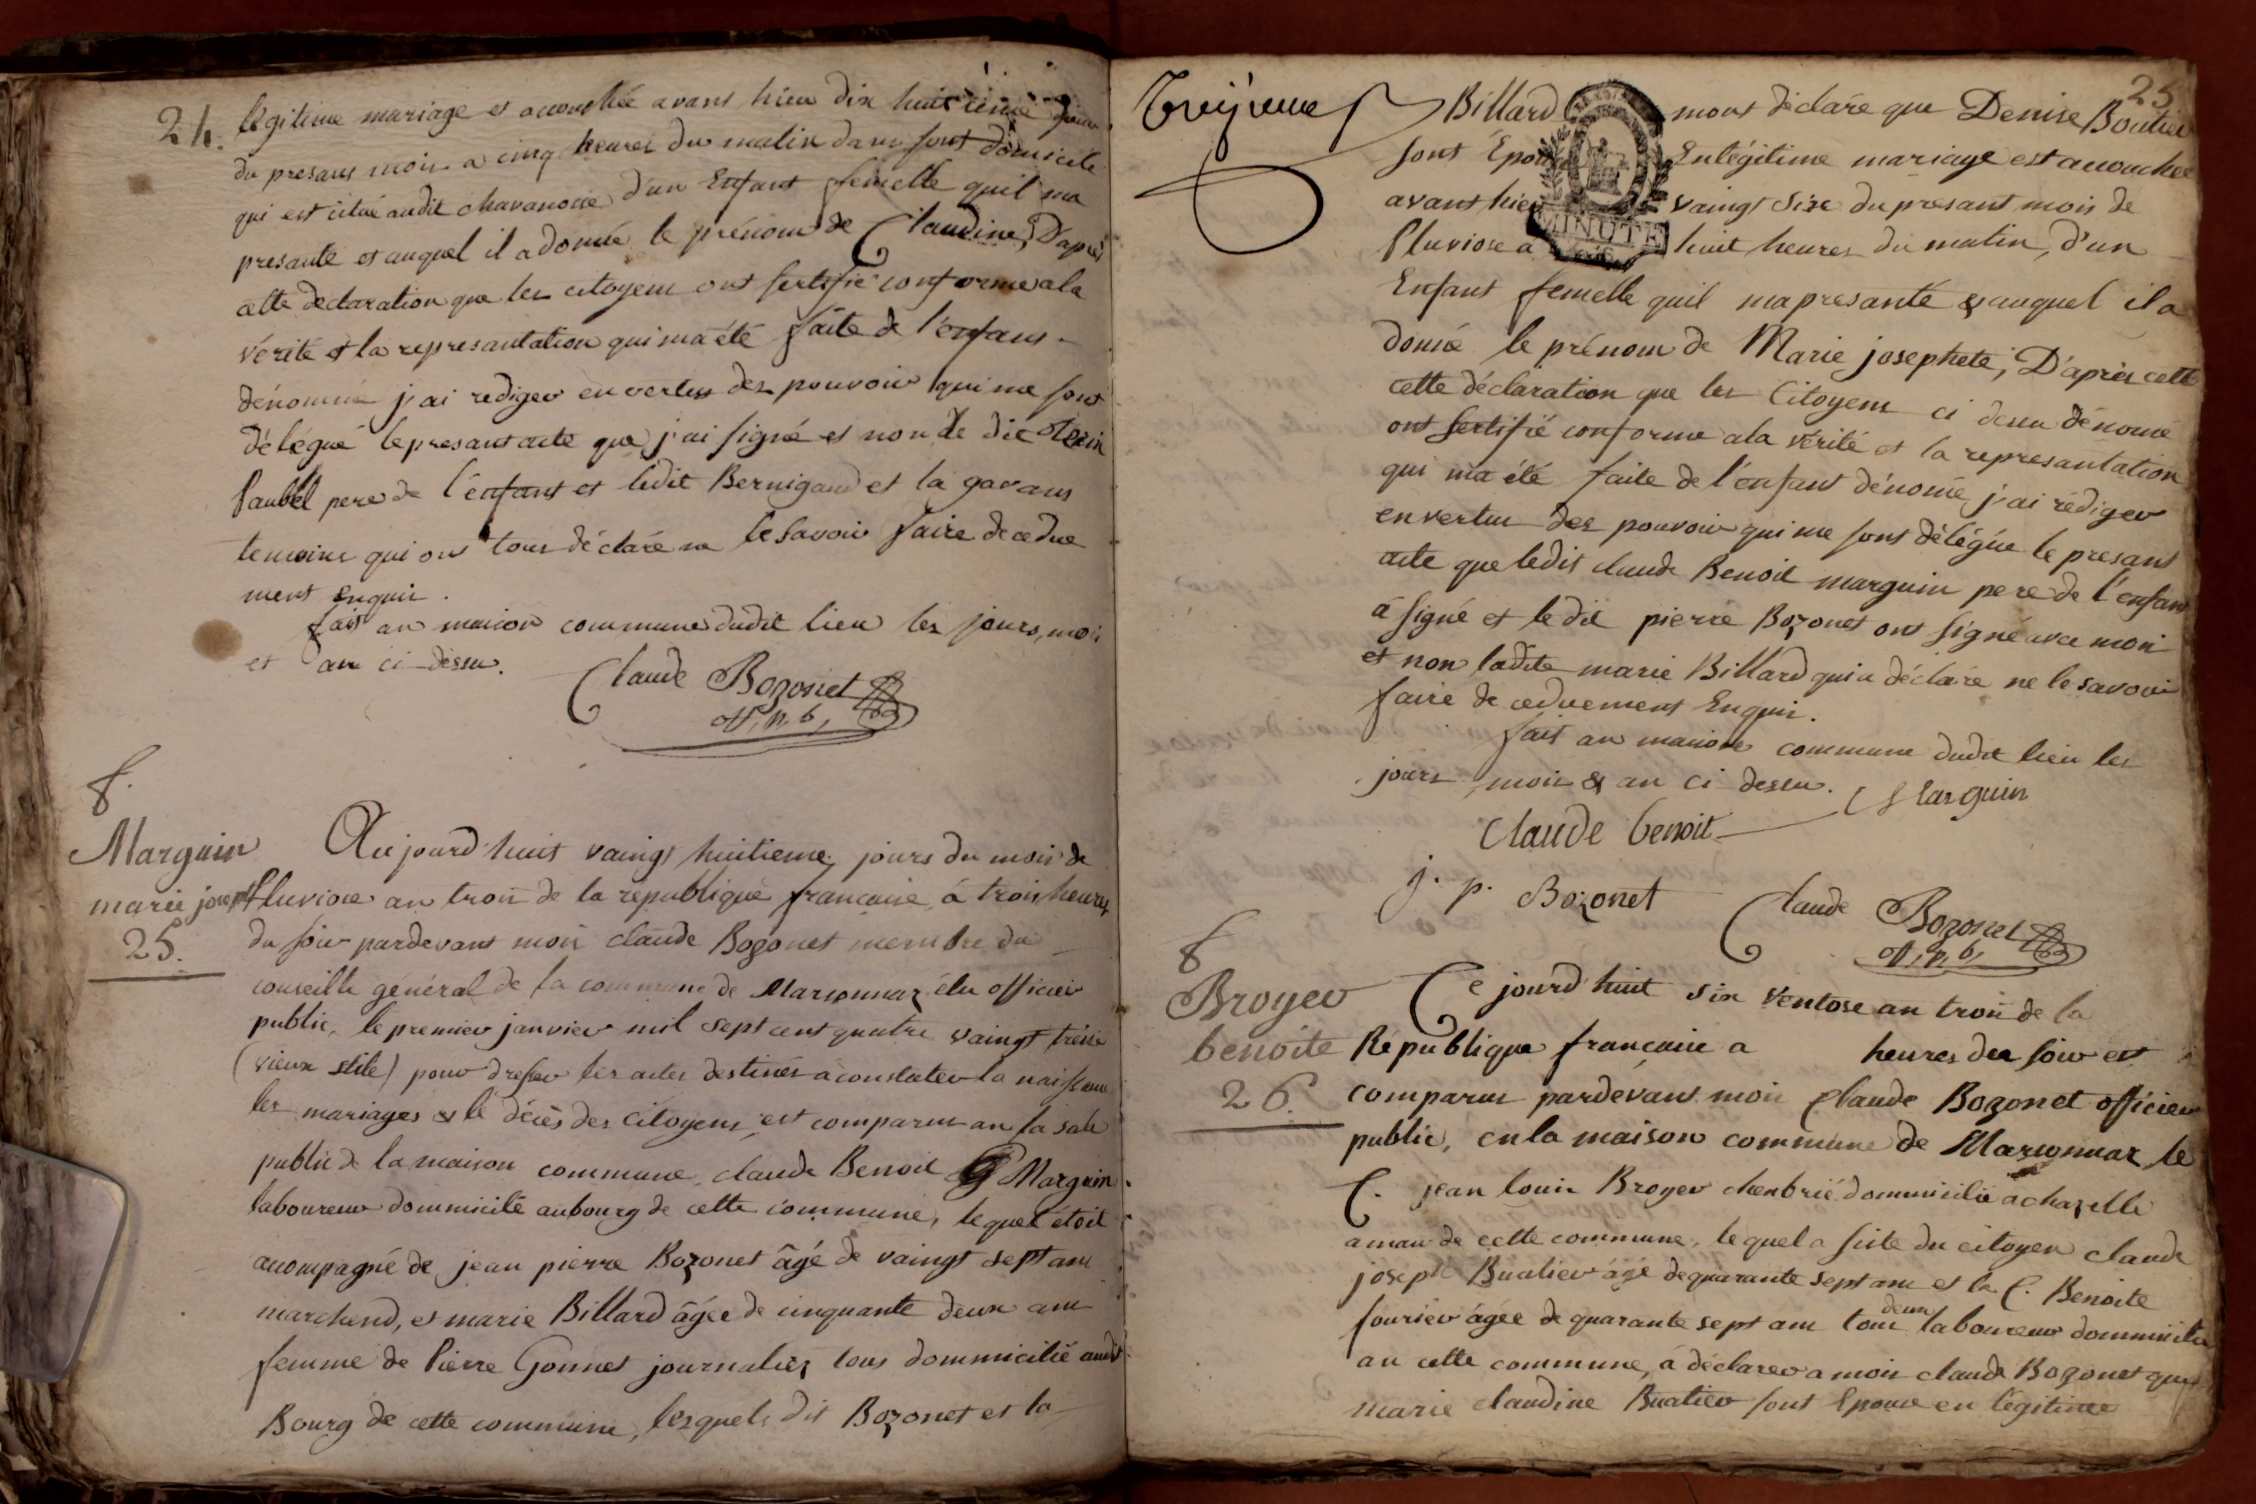 24.
légitime mariage et acouchée avant hier dix huitième jour
du presant mois a cinq heures du matin dans sont domicile
qui est situé audit chavanosse d'un Enfant femelle quil ma
presanté et auquel il a donné le prénom de Claudine, D'après
cette declaration que les citoyens ont sertifié conforme a la
vérité et la represantation qui ma été faite de l'enfans
dénommé j'ai rediger en vertus des pouvoir qui me sont
délégué le presant acte que j'ai signé et non le dit
Paubel pere de l'enfant et ledit Bernigaud et la gavans
temoins qui ont tous déclaré ne le savoir faire de ce due
ment enquir.
fait an maison commune dudit lieu les jours, mois
et an ci-dessu.
Claude Bozonet
off, p, b,
8.
Marguin
marie joseph
25.
Aujourd'huit vaingt huitieme jours du mois de
Pluviose an trois de la republique francaise à trois heures
du soir pardevant moi claude Bozonet membre du
conseille général de la commune de Marsonnaz élu officier
public, le premier janvier mil sept cent quatre vaingt treise
(vieux stile) pour dresser les actes destinés à constater la naissance
les mariages & le décès des citoyens est comparut an la sale
public de la maison commune, claude Benoit Marguin
laboureur dommicilé au bourg de cette commune, lequel étoit
acompagné de jean pierre Bozonet âgé de vaingt sept ans
marchend, et marie Billard âgée de cinquante deux ans
femme de Pierre Gonnet journalier tous dommicilié audit
Bourg de cette commune, lesquels dit Bozonet et la
25
Billard mont déclaré que Denise Boutier
sont Epouse En légitime mariage est acouchée
avant hier vaingt sixe du presant mois de
Pluviose a huit heures du matin, d'un
MINUTE
Enfant femelle quil ma presanté & auquel il a
donné le prénom de Marie josephete, D'après cette
cette déclaration que les Citoyens ci dessu dénomé
ont sertifié conforme a la vérité et la represantation
qui ma été faite de l'enfant dénomé, j'ai rédiger
en vertu des pouvoir qui me sont délégué le presant
acte que ledit claude Benoit marguin pere de l'enfant
à signé et le dit pierre Bozonet ont signé avec moi
et non ladite marie Billard qui a déclaré ne le savoir
faire de ceduement Enquir.
fait an maison commune dudit lieu les
jours, mois & an ci dessu.
Marguin
Claude benoit
j. p. Bozonet
Claude Bozonet
off, p, b,
8
Broyer
benoite
26.
Ce jourd'huit six Ventose an trois de la
République francaise a heures du soir est
comparut pardevant moi Claude Bozonet officier
public, en la maison commune de Marsonnaz, le
C. jean louis Broyer dommicilié a chazelle
amau de cette commune, le quel a suite du citoyen claude
joseph Buatier âgé de quarante sept ans et la C. Benoite
fourier âgée de quarante sept ans tous deux laboureur dommicilié
an cette commune, à déclarer a moi claude Bozonet que
marie claudine Buatier sont Epouse en légitime